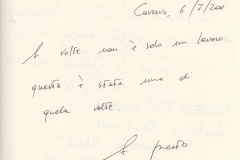 Carrara, 6/7/201
A volte non è solo un lavoro...
questa è stata una di
quelle volte
A presto